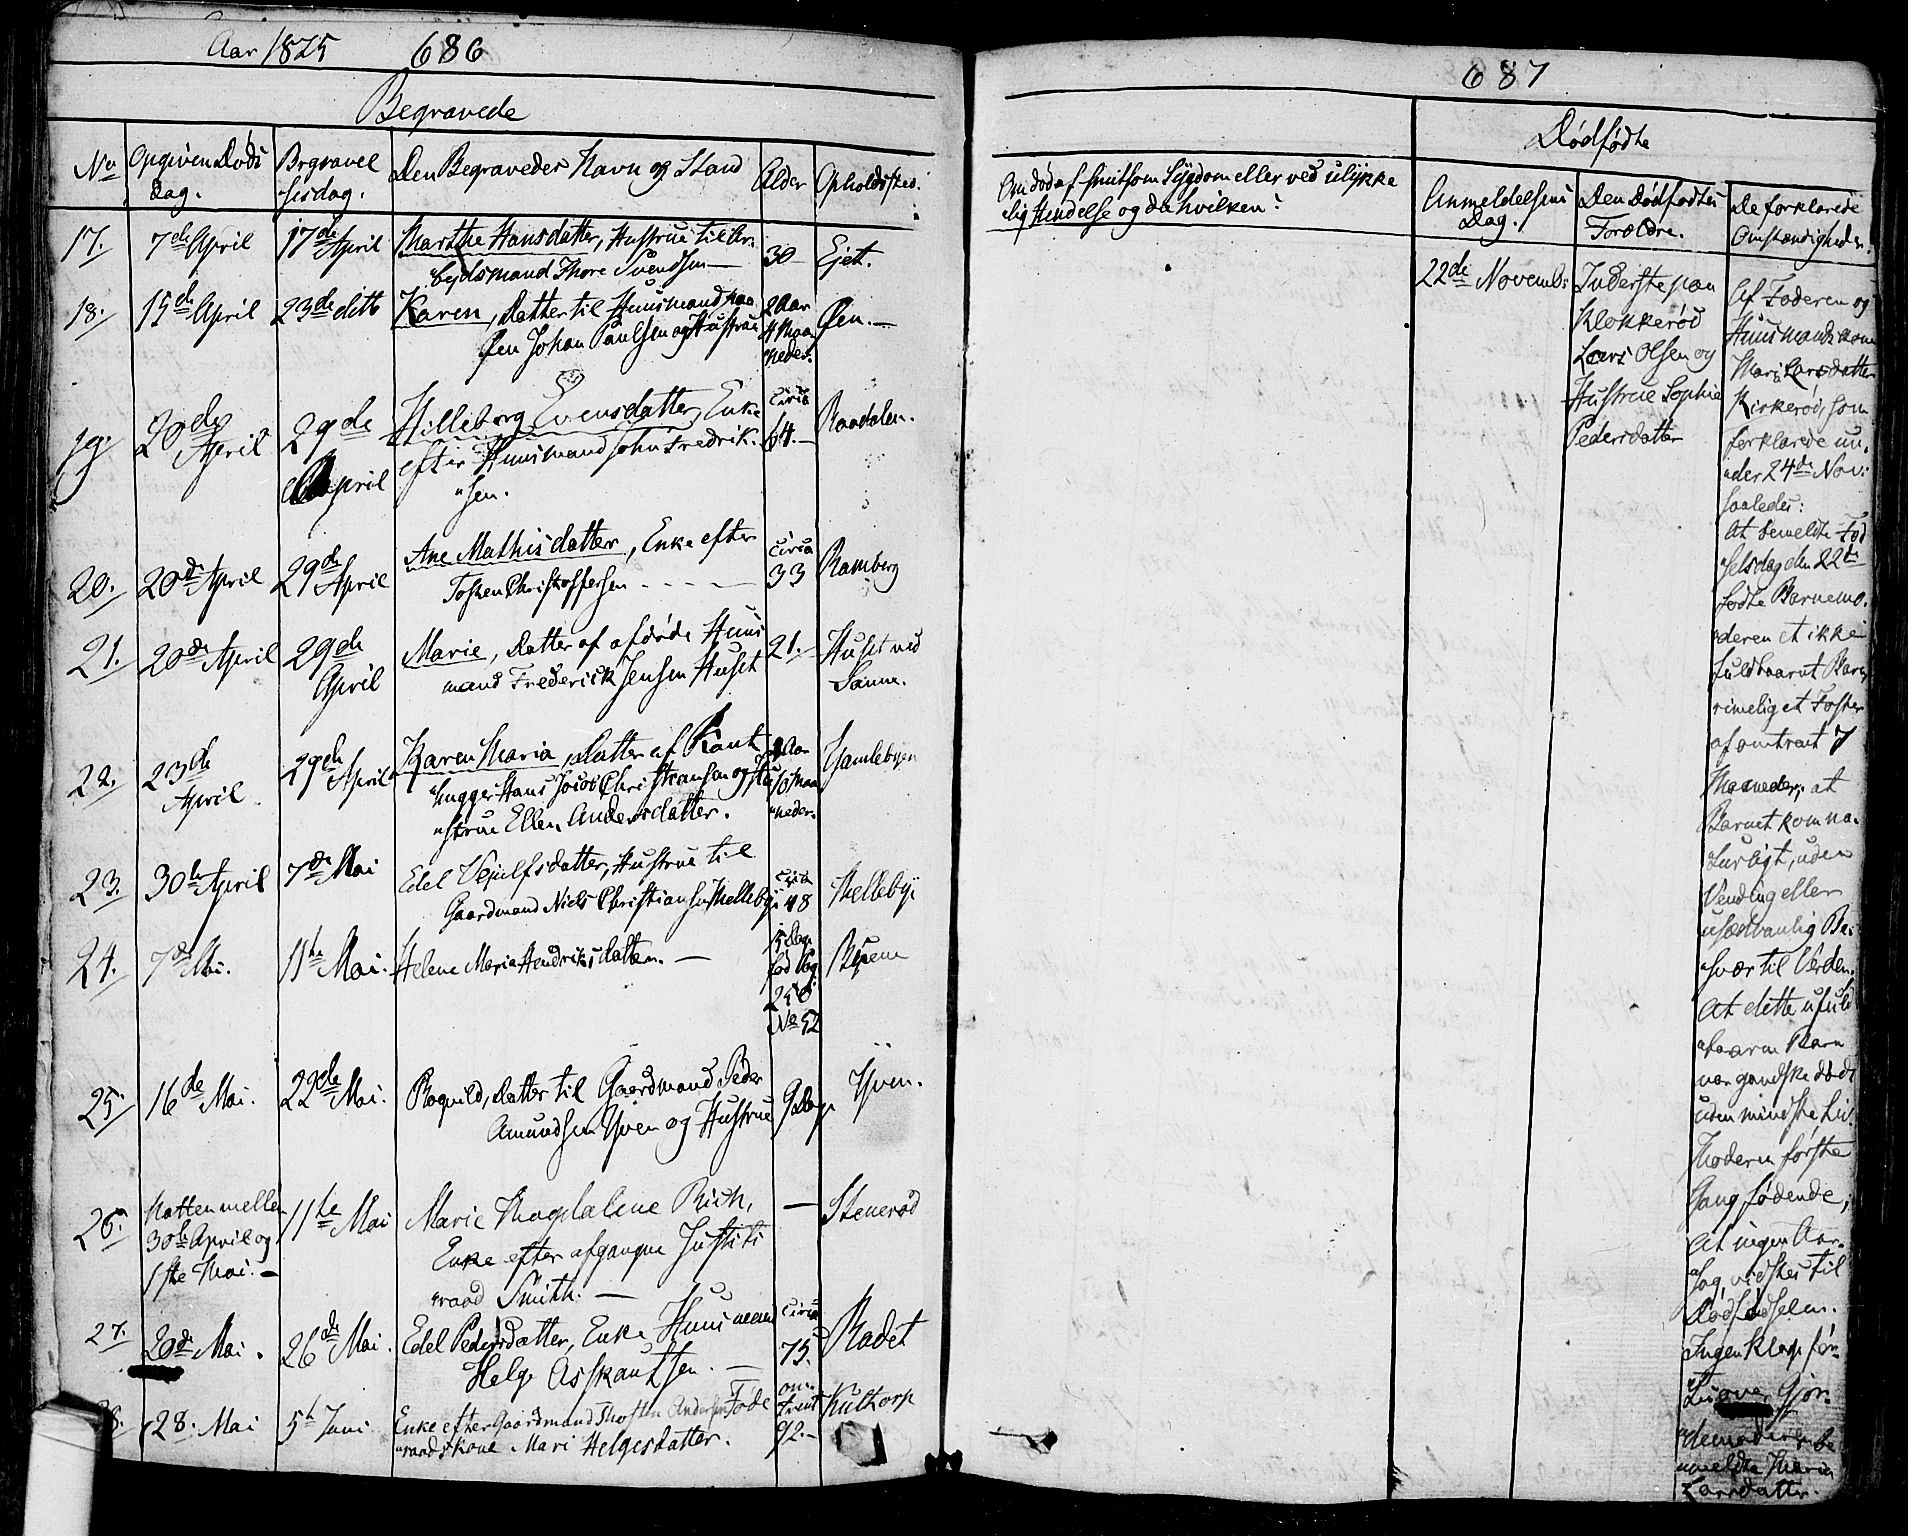 Aar 1825 686
Begravede
No
Opgiven Døds
Dag.
Begravel
sisdag.
Den Begravedes Navn og Stand
Alder
Opholdssted.
17.
7de April
17de April
Marthe Hansdatter, Hustrue til Ar-
bejdsmand Thore Svendsen —
30 —
Ejet.
18.
15de April
23de dito
Karen, Datter til Huusmand paa
Øen Johan Paulsen og Hustrue
2 Aar
4 Maa
neder.
Øen. —
19.
20de
April
29de
April
Hilleborg Evensdatter, Enke
efter Huusmand John Fredrik-
"sen.
circa
64. —
Raadalen.
20.
20de April
29de
April
Ane Mathisdatter, Enke efter
Tosten Christoffersen - - - -
circa
33
Ramberg
21.
20de April
29de
April
Marie, Datter af afdøde Huus
mand Frederick Jensen Huset
21. —
Huset ved
Sanne.
22.
23de
April
29de
April
Karen Maria, Datter af
"hugger Hans Jacob Christiansen og Hu
"strue Ellen Andersdatter.
Aar
10 Maa
"neder.
Gamlebyen
23.
30te April
7de Mai
Edel Vejulfsdatter, Hustrue til
Gaardmand Niels Christiansen Mellebye
circa
48
Mellebye
24.
7de Mai.
11te Mai.
Helene Maria Hendriksdatter. —
5 Dage
fød Pag
250
No 52
25.
16de Mai.
22de Mai.
Ragnild, Datter til Gaardmand Peder
Amundsen Hven og Hustrue
9 Dage
Hven.
26.
Natten mellem
30te April og
1ste Mai. —
11te Mai
Marie Magdalene Rich,
Enke efter afgangne Justiti
"raad Smith. —
—
Stenerød
27.
20de Mai.
26de Mai.
Edel Pedersdatter, Enke Huusmand
Helge Asskautsen. —
circa
75.
Rødet
28. Mai
5te Juni
Enke efter Gaardmand Thosten Andersen Føde
"raadskone Mari Helgesdatter.
om-
trent
92. —
Kultorp
687
Dødfødte
Om død af smitsom Sÿgdom eller ved ulÿkke
lig Hendelse og da hvilken?
Anmeldelsens
Dag.
Den Dødfødtes
Forældre.
De forklarede
Omstændigheder.
22de Novemb:
Inderste paa
Klokkerød
Lars Olsen og
Hustrue Sophie
Pedersdatter
Af Faderen og
Huusmandskone
Mari Larsdatter
Kirkerød, som
forklarede un-
"der 24de Nov:
saaledes:
At bemeldte Fød
"selsdag den 22de
fødte Barnemo-
"deren et ikke
fuldbaaret Barn
rimelig et Foster
af omtrent 7
Maaneder; at
Barnet kom na-
"turligt, uden
Vending eller
usædvanlig Be-
"svær til Verden.
At dette ufuld
"baaren Barn
var gandske dødt
uden mindste Liv.
Moderen første
Gang fødende;
At ingen Aar-
"sag vidstes til
Dødfødselen.
Ingen Klage før-
tes over Gjor-
"demoderen be
"meldte Maria
Larsdatter.